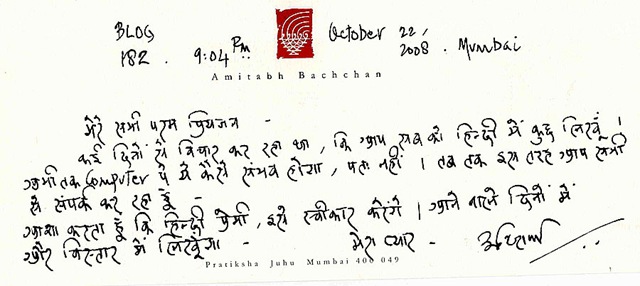 BLOG October 22,
182. 9:04 PM 2008. Mumbai
Amitabh Bachchan
मेरे सभी परम प्रियजन -
कई दिनों से विचार कर रहा था, कि आप सब को हिन्दी में कुछ लिखूँ ।
अभी तक Computer पे ये कैसे संभव होगा, पता नहीं । तब तक इस तरह आप सभी
से संपर्क कर रहा हूँ -
आशा करता हूँ कि हिन्दी प्रेमी, इसे स्वीकार करेंगे । आने वाले दिनों में
और विस्तार में लिखूंगा - मेरा प्यार -
Pratiksha Juhu Mumbai 400 049